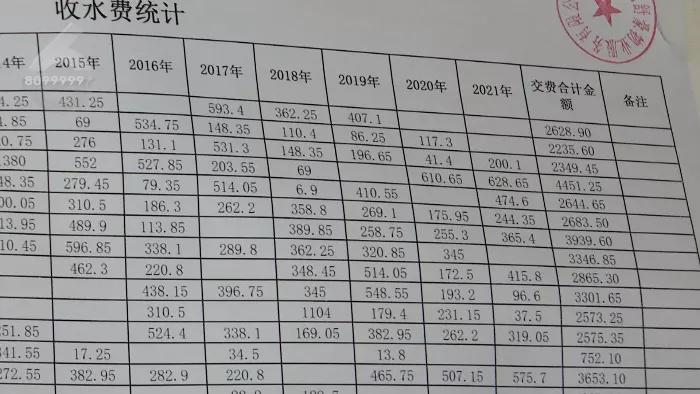 收水费统计
8099999
4年 2015年 2016年 2017年 2018年 2019年 2020年 2021年 交费合计金额 备注
4.25 431.25 593.4 362.25 407.1 2628.90
4.85 69 534.75 148.35 110.4 86.25 117.3 2235.60
0.75 276 131.1 531.3 148.35 196.65 41.4 200.1 2349.45
1380 552 527.85 203.55 69 610.65 628.65 4451.25
48.35 279.45 79.35 514.05 6.9 410.55 474.6 2644.65
00.05 310.5 186.3 262.2 358.8 269.1 175.95 244.35 2683.50
13.95 489.9 113.85 389.85 258.75 255.3 365.4 3939.60
10.45 596.85 338.1 289.8 362.25 320.85 345 3346.85
462.3 220.8 348.45 514.05 172.5 415.8 2865.30
438.15 396.75 345 548.55 193.2 96.6 3301.65
310.5 1104 179.4 231.15 37.5 2573.25
251.85 524.4 338.1 169.05 382.95 262.2 319.05 2575.35
341.55 17.25 34.5 13.8 752.10
272.55 382.95 282.9 220.8 465.75 507.15 575.7 3653.10